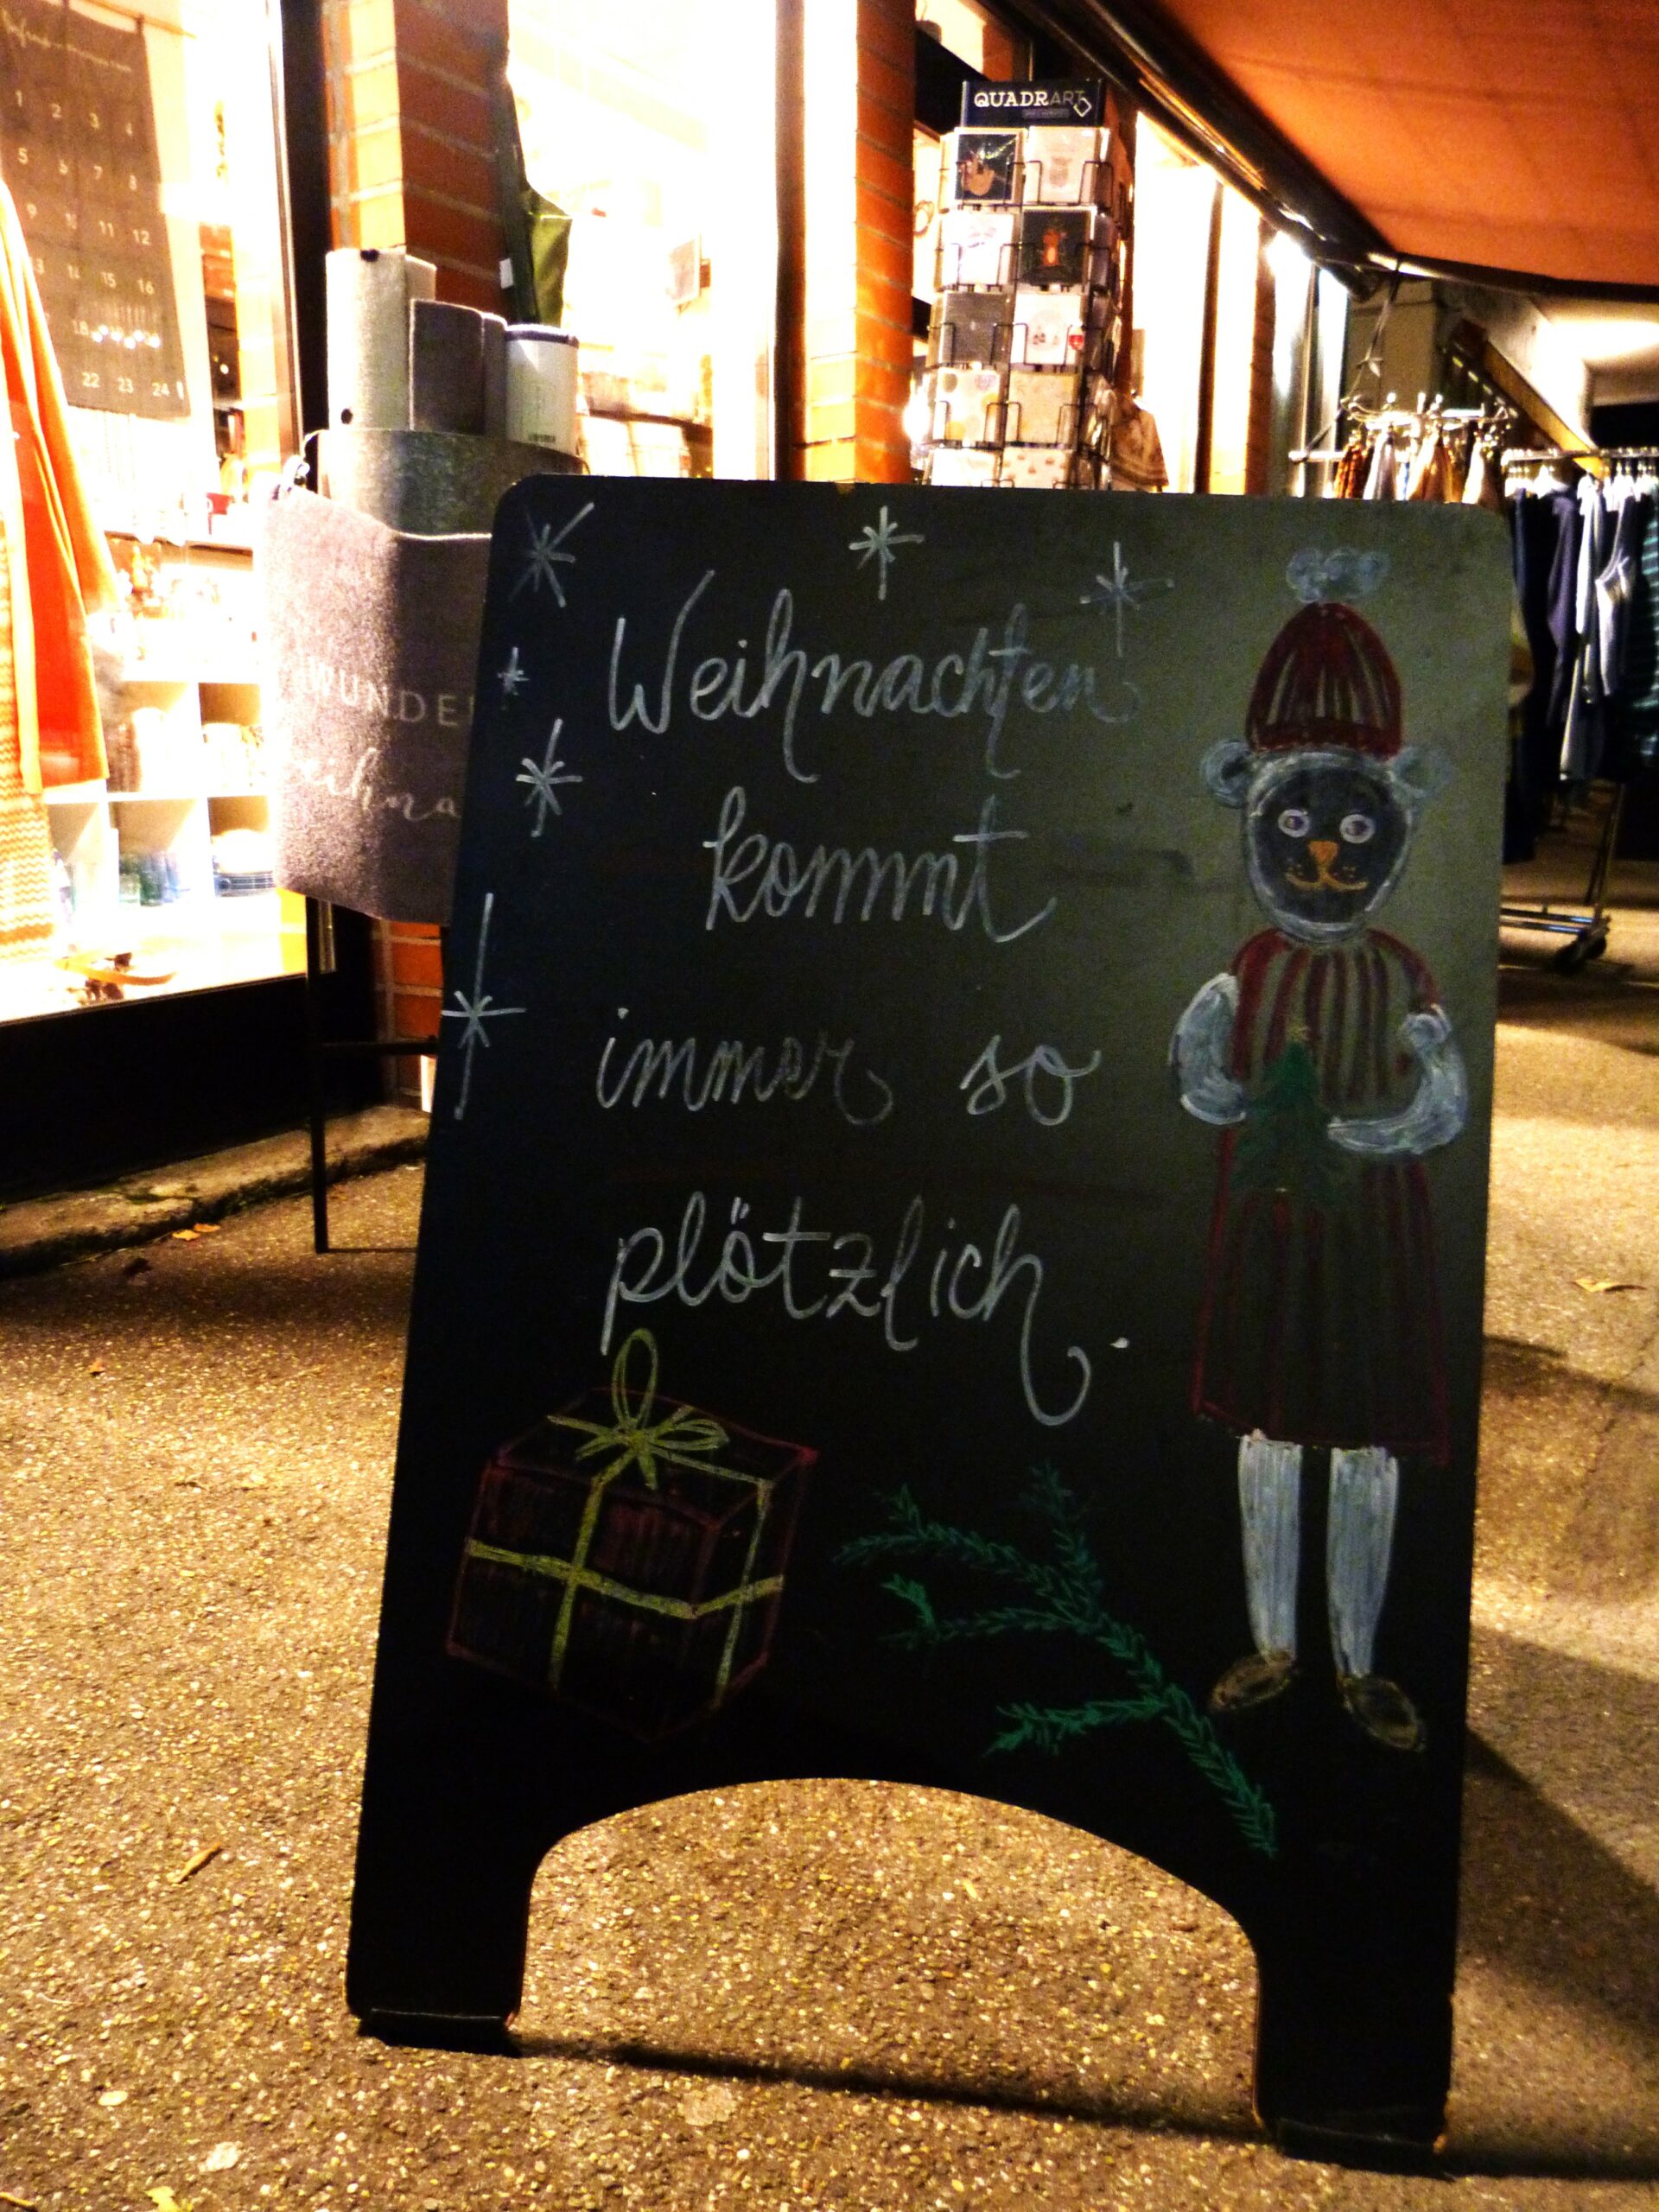 QUADRART
1 2 3 4
5 6 7 8
9 11 12
15 16
18
22 23 24
Weihnachten
kommt
immer so
plötzlich.